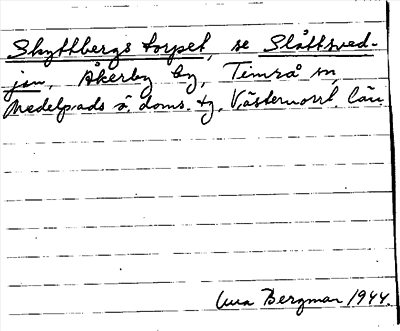 Skyttbergs torpet, se Slåttsved-
jan, Åkerby by, Timrå sn,
Medelpads ö. doms. tg. Västernorrl. län
Bergman 1944.